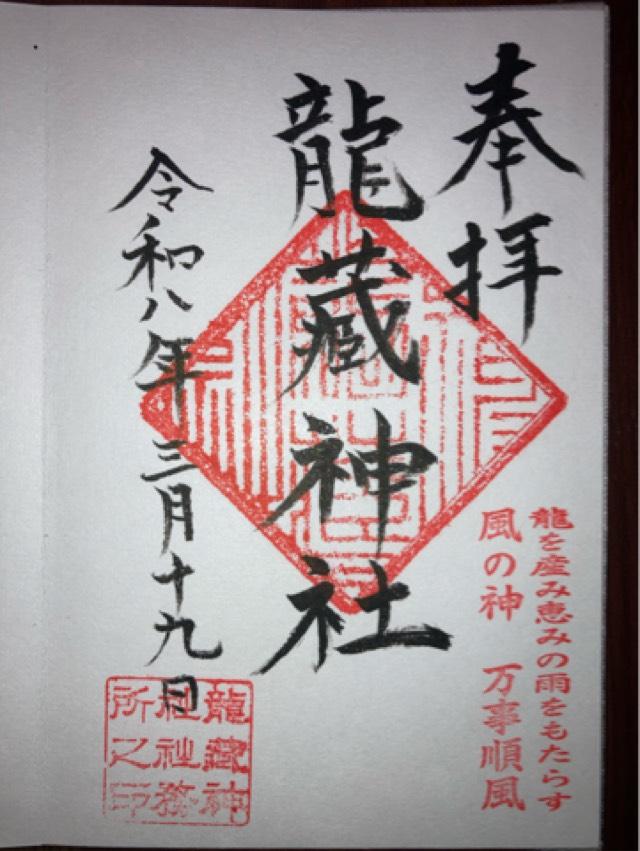 奉拝
龍蔵神社
令和八年三月十九日
龍を産み恵みの雨をもたらす
風の神 万事順風
龍蔵神
社社務
所之印